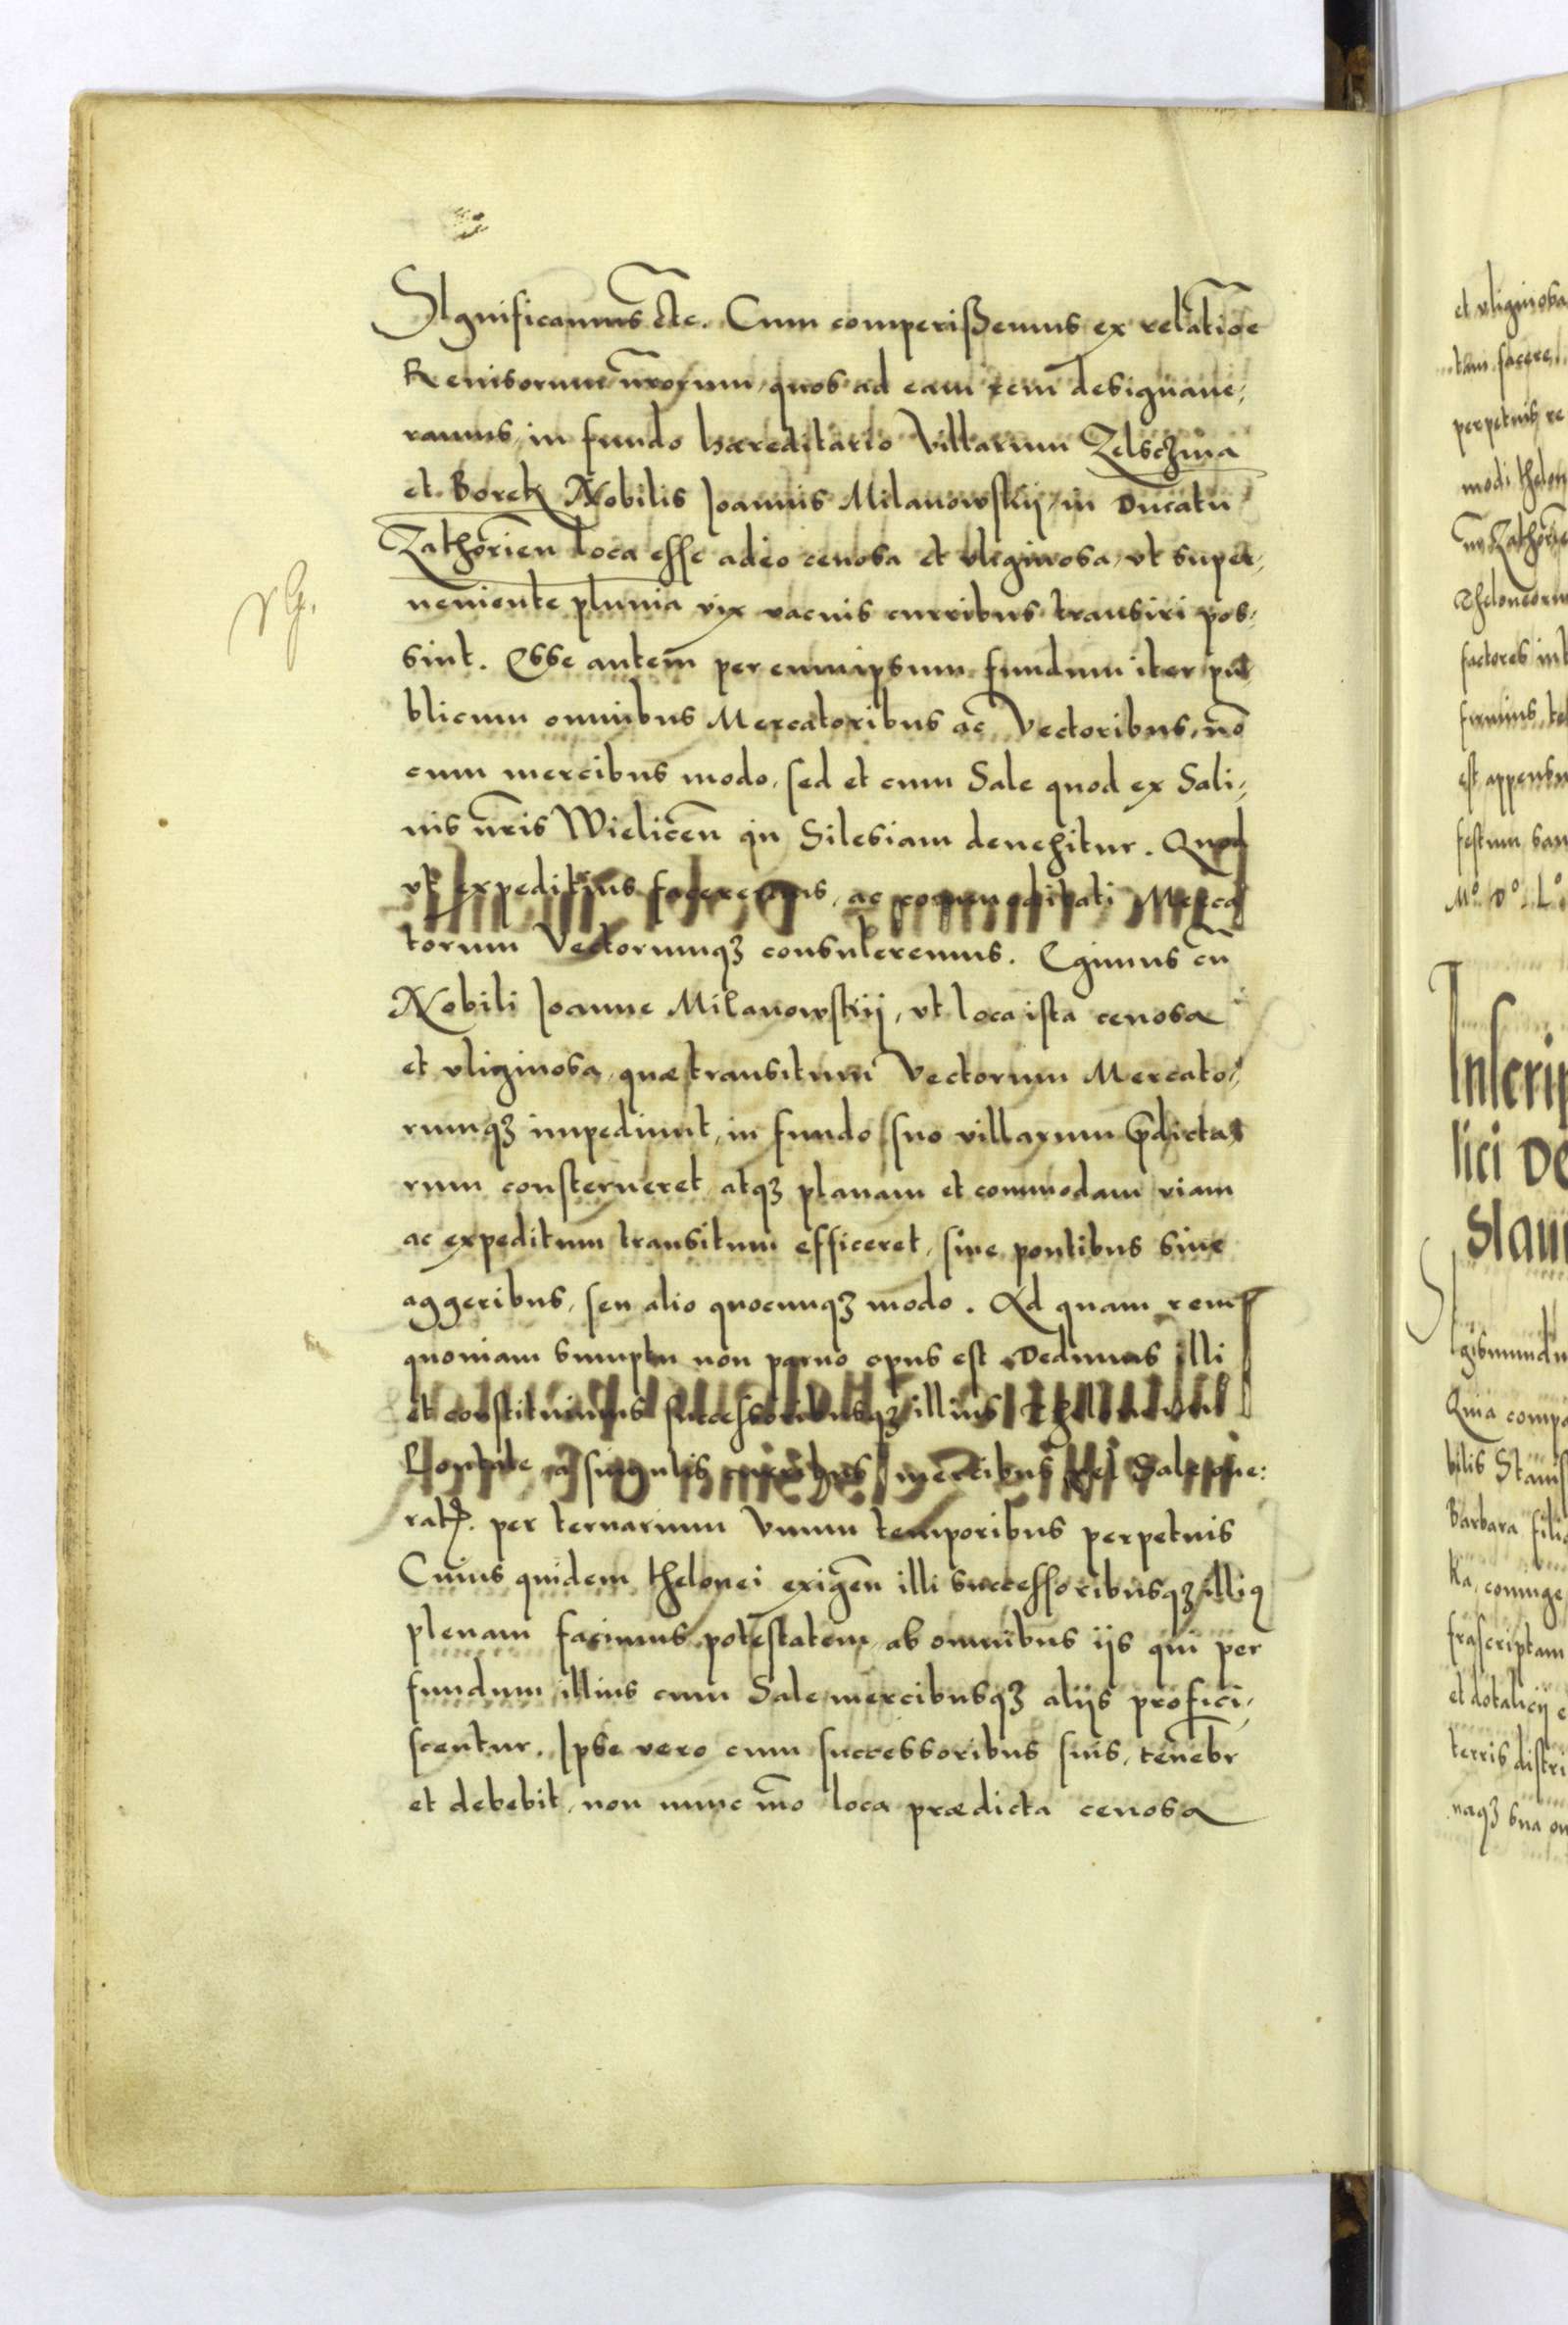 SIgnificamus etc. Cum comperißemus ex relatiõe
Reuisorum nr̃orum, quos ad eam rem designaue,
ramus, in fundo hæreditario Villarum Zelsczina
et Borek Nobilis Joannis Milanowskij, in Ducatu
Zathorien̄ loca esse adeo cenosa et vliginosa, vt super,
ueniente pluuia vix vacuis curribus transiri pos,
sint. Esse autem per eum ipsum fundum iter pu
blicum omnibus Mercatoribus ac Vectoribus, nō
cum mercibus modo, sed et cum Sale quod ex Sali,
nis nr̃is Wielicen̄ in Silesiam deuehitur. Quod
vt expeditius faceremus, ac commoditati Merca
torum Vectorumqʒ consuleremus. Egimus cū
Nobili Joanne Milanowskij, vt loca ista cenosa
et vliginosa, quæ transitum Vectorum Mercato,
rumqʒ impediunt, in fundo suo villarum p̃dicta
rum consterneret atqʒ planam et commodam viam
ac expeditum transitum efficeret, siue pontibus siue
aggeribus, seu alio quocunqʒ modo. Ad quam rem
quoniam sumptu non paruo opus est Dedimus illi
et constituimus successoribusqʒ illius
Pontale a singulis curribus mercibus vel Sale one:
rat̃. per ternarium Vnum temporibus perpetuis
Cuius quidem thelonei exigen̄ illi successoribusqʒ illiꝰ
plenam facimus potestatem, ab omnibus ijs qui per
fundum illius cum Sale mercibusqʒ aliis profici,
scentur. Ipse vero cum successoribus suis, tenebr̃
et debebit, non nunc mõ loca prædicta cenosa
et vliginosa
perpetuis re
Theloneorum
factores int
festum san
Inscrip
lici De
Stani
Quia comp
bilis Stanis
Barbara filia
ka, coniuge
frascriptam
et dotalicij e
terris distri
naqʒ sua om